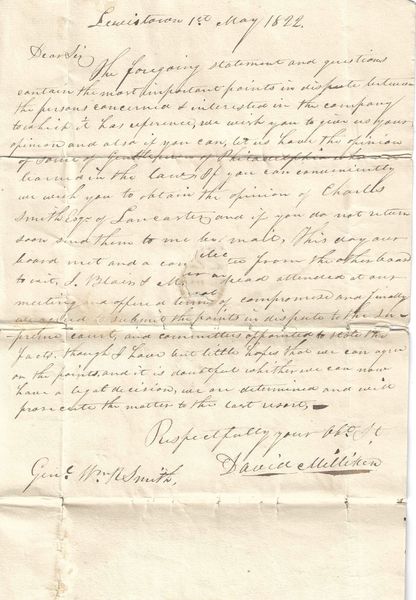 Lewistown 1st May 1822.
Dear Sir
The foregoing statement and questions
contain the most important points in dispute between
the persons concerned & interested in the company
to which it has reference, we wish you to give us your
opinion and also if you can, let us have the opinion
of some of Gentlemen of Philadelphia who
learned in the law. If you can conveniently
we wish you to obtain the opinion of Charles
Smith Esqr. of Lancaster, and if you do not return
soon send them to me by mail, This day our
board met and a com tee from the other board
to wit, J. Blair & attended at our
meeting and offered terms of compromise and finally
we agreed to submit the points in dispute to the Su-
preme court, and committees appointed to state the
facts. though I have but little hopes that we can agree
on the points, and it is doubtful whether we can now
have a legal decision, we are determined and will
prosecute the matter to the last resort,
Respectfully your Obt. St
David Milliken
Genl. Wm R Smith,